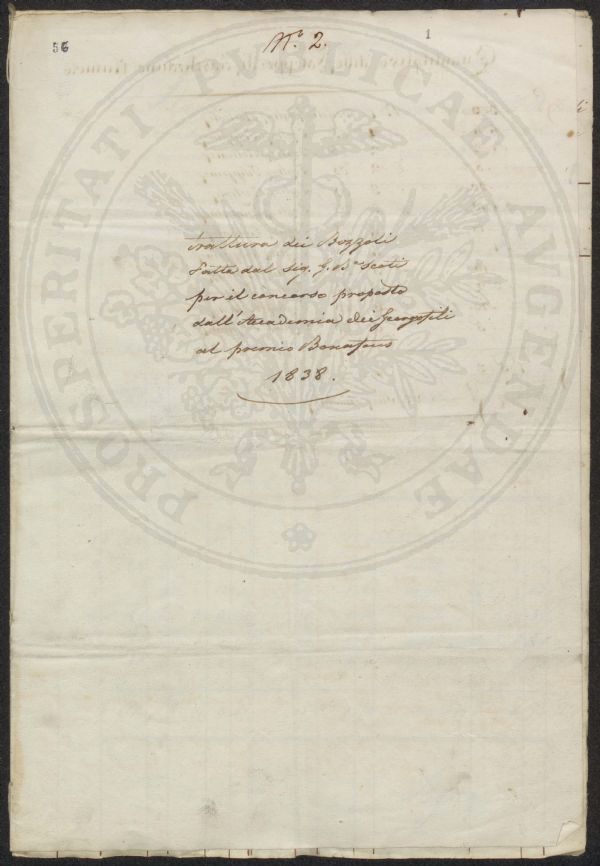 56
N.º 2.
1
Trattura dei Bozzoli
Fatta dal Sig. G. Bª Scoti
per il concorso proposto
dall'Accademia dei Georgofili
al premio Bonafous
1838.
PROSPERITATI PVBLICAE AVGENDAE